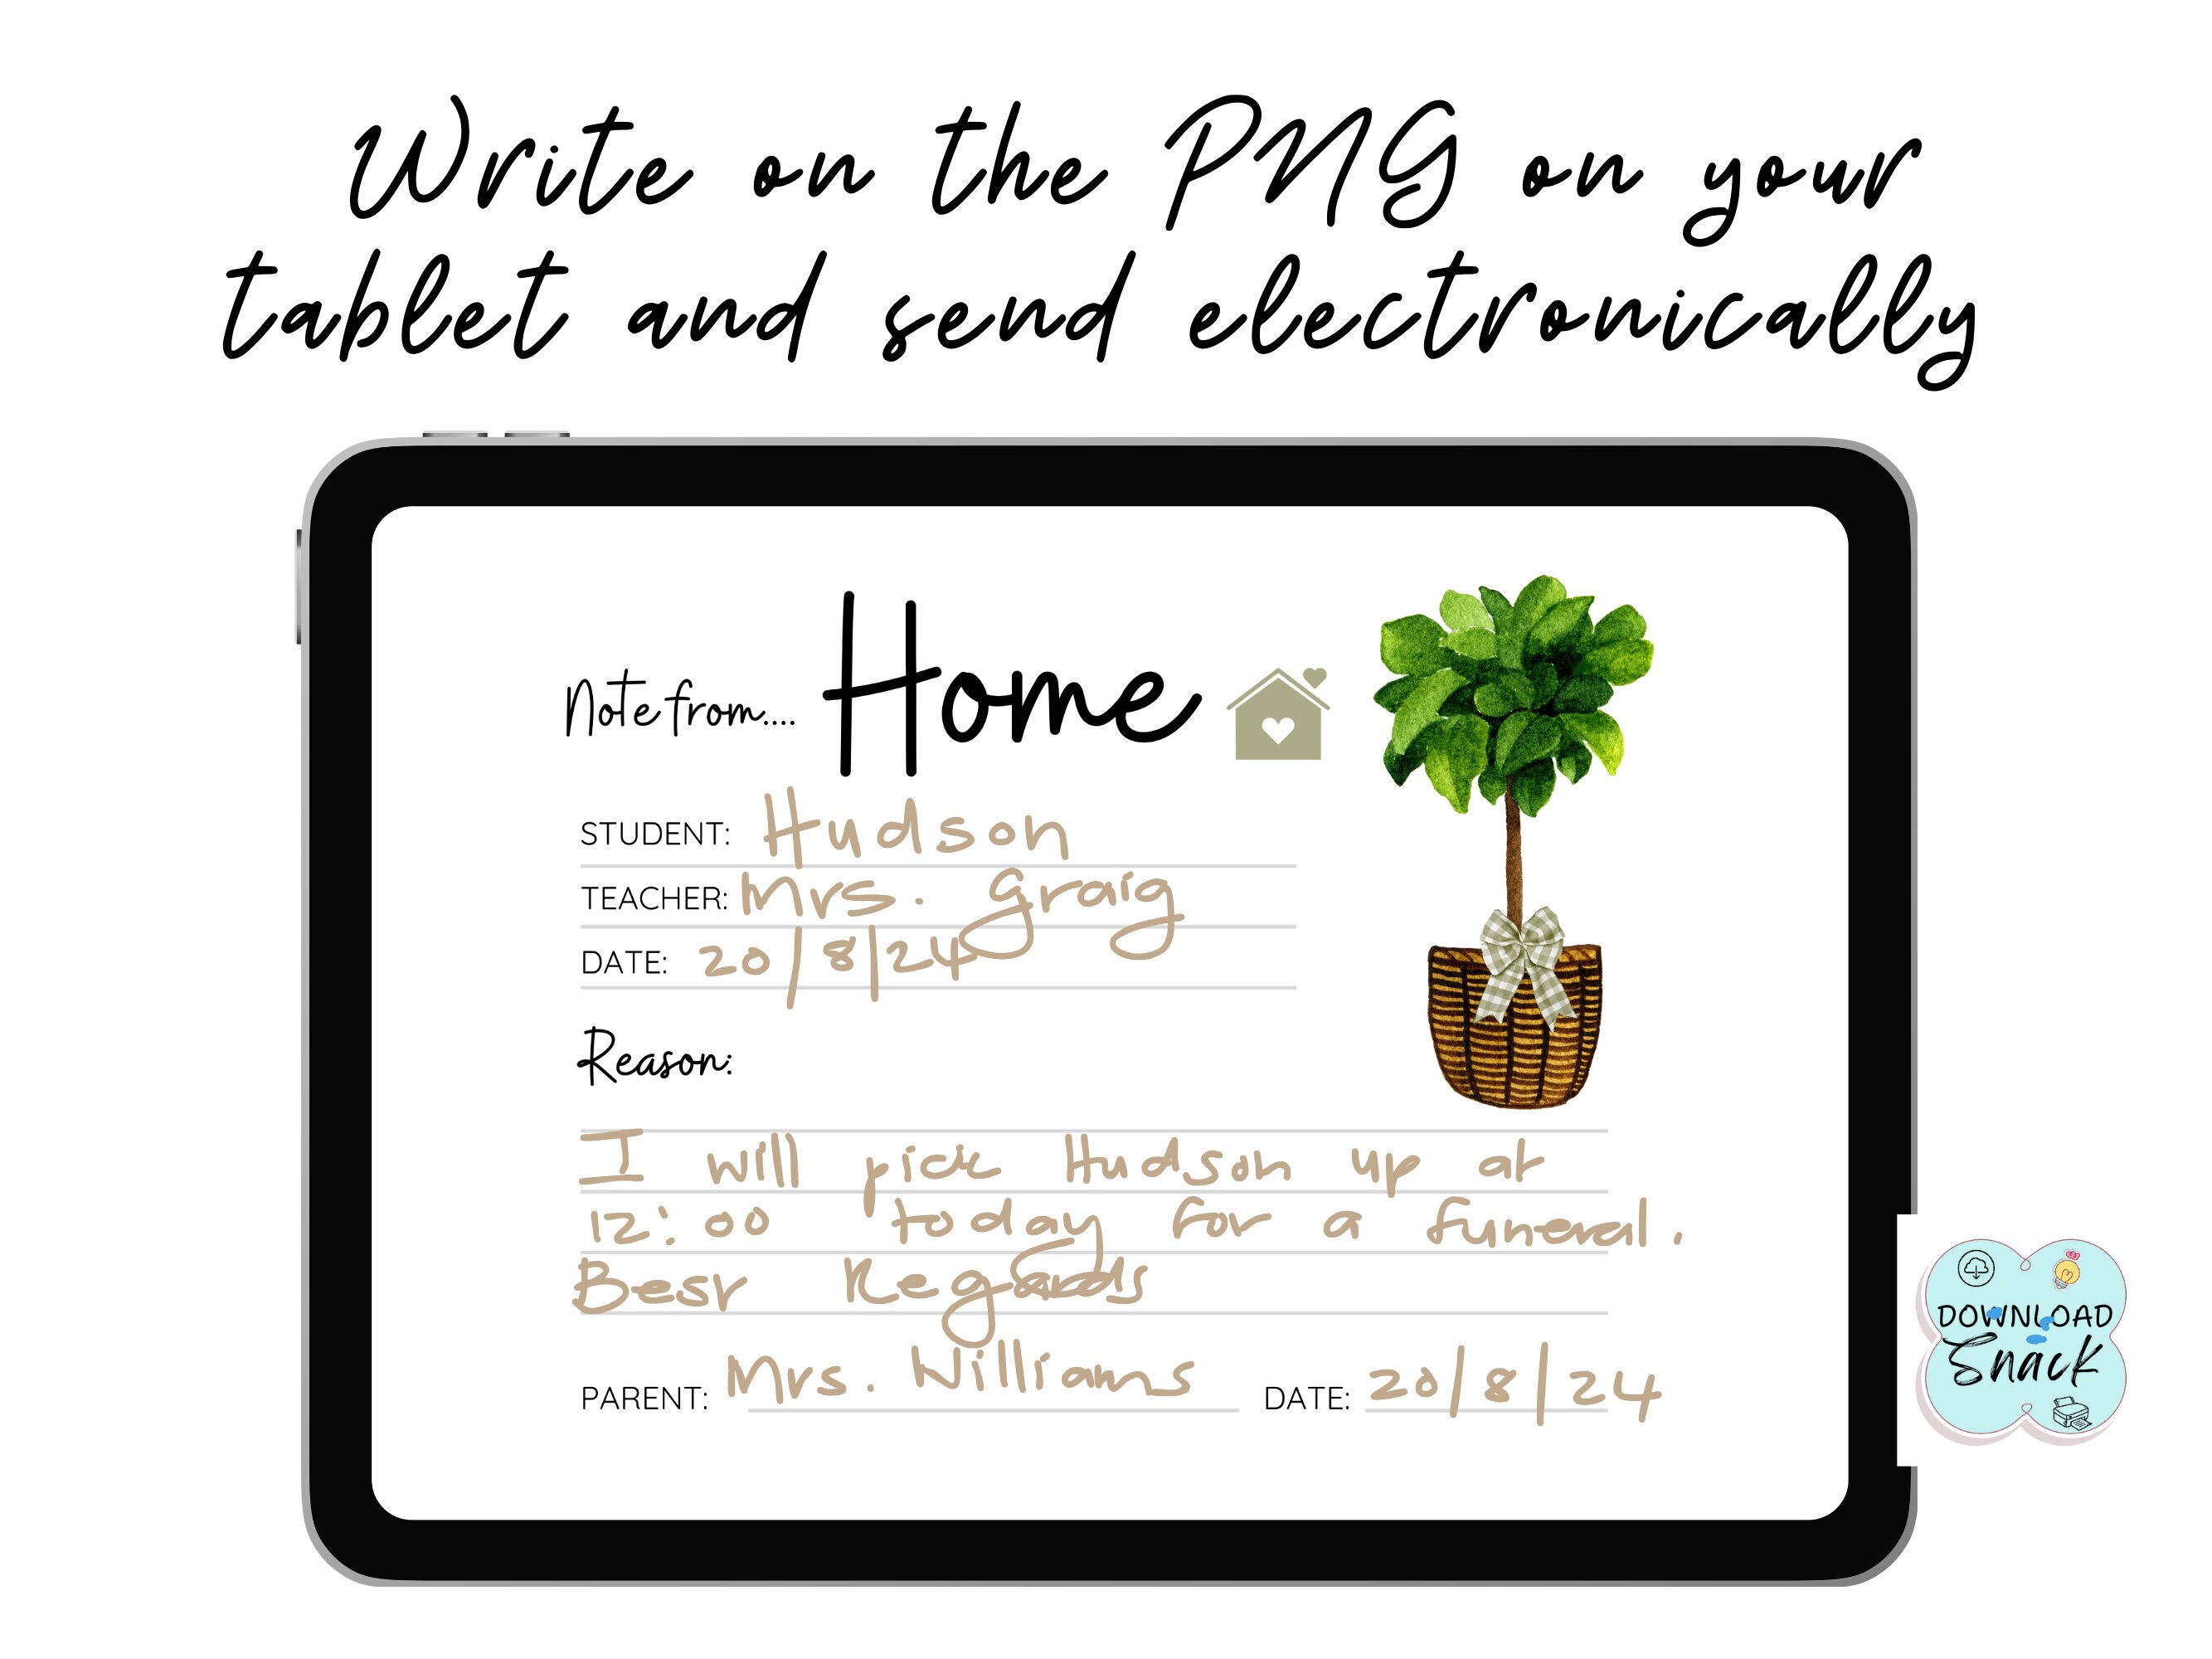 Write on the PNG on your
tablet and send electronically
Note from.... Home
STUDENT: Hudson
TEACHER: Mrs. Graig
DATE: 20/8/24
Reason:
I will pick Hudson up at
12:00 today for a funeral.
Best Regards
PARENT: Mrs. Williams DATE: 20/8/24
DOWNLOAD
Snack